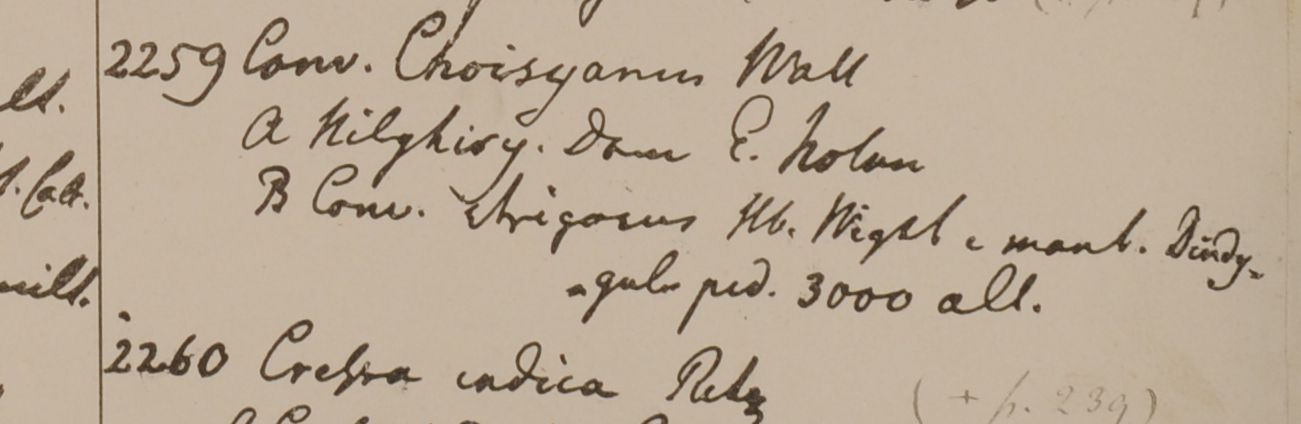 lt.
2259 Conv. Choisyanus Wall
A Nilghiry. Dom E. Noton
t. Cat.
B Conv. strigosus Hb. Wight e mont. Dindy-
-gul ped. 3000 alt.
2260 Cressa indica Retz
(+ p. 239)